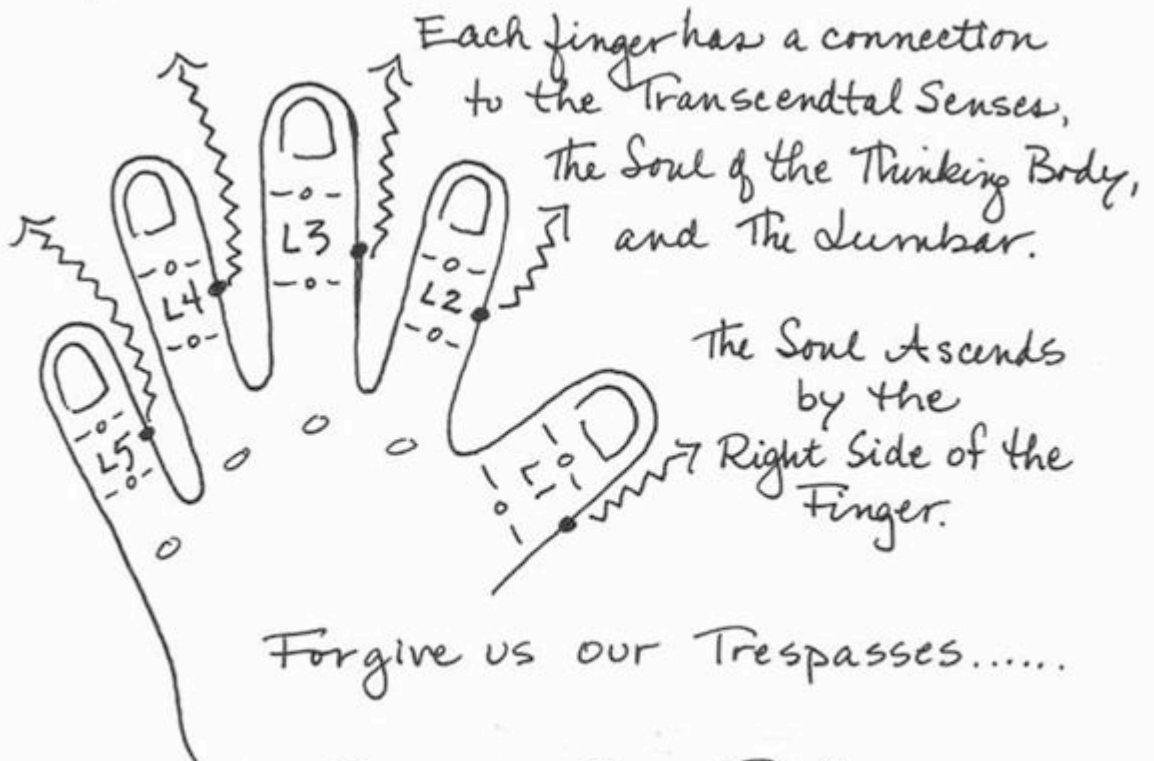 Each finger has a connection
to the Transcendtal Senses,
The Soul of the Thinking Body,
and The Lumbar.
L3
L4
L2
The Soul Ascends
by the
Right Side of the
Finger.
L5
L1
Forgive us our Trespasses......